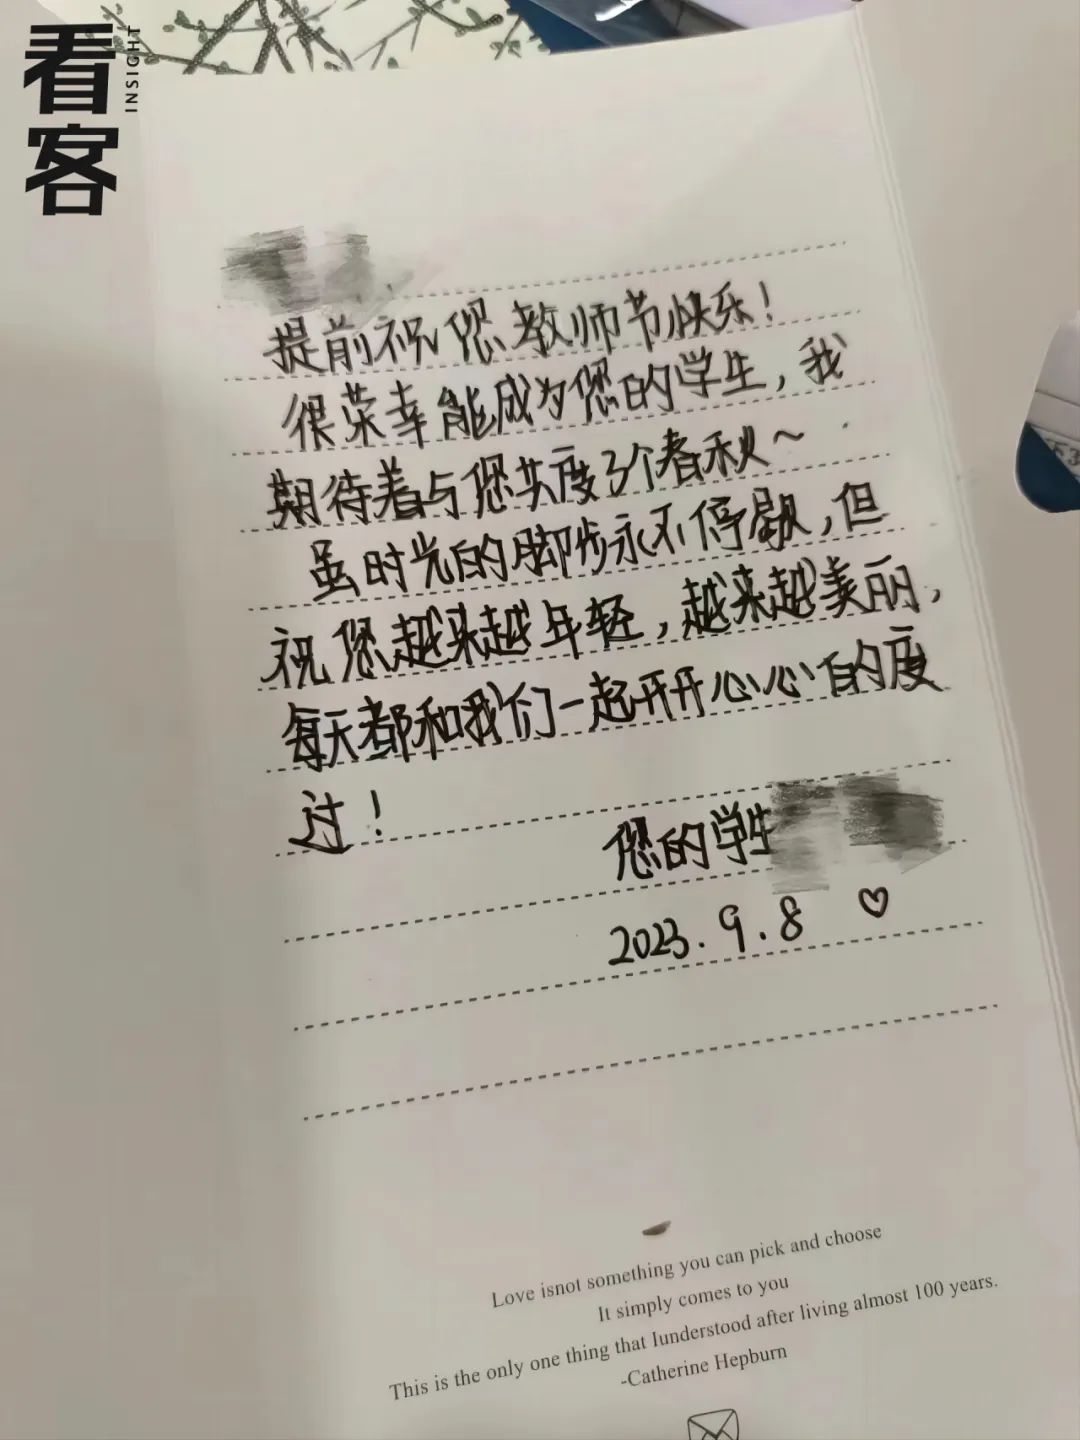 看客
INSIGHT
提前祝您教师节快乐!
很荣幸能成为您的学生,我
期待着与您共度3个春秋~
虽时光的脚步永不停歇,但
祝您越来越年轻,越来越美丽,
每天都和我们一起开开心心的度
过!
您的学生
2023.9.8 ♡
Love isnot something you can pick and choose
It simply comes to you
This is the only one thing that Iunderstood after living almost 100 years.
-Catherine Hepburn